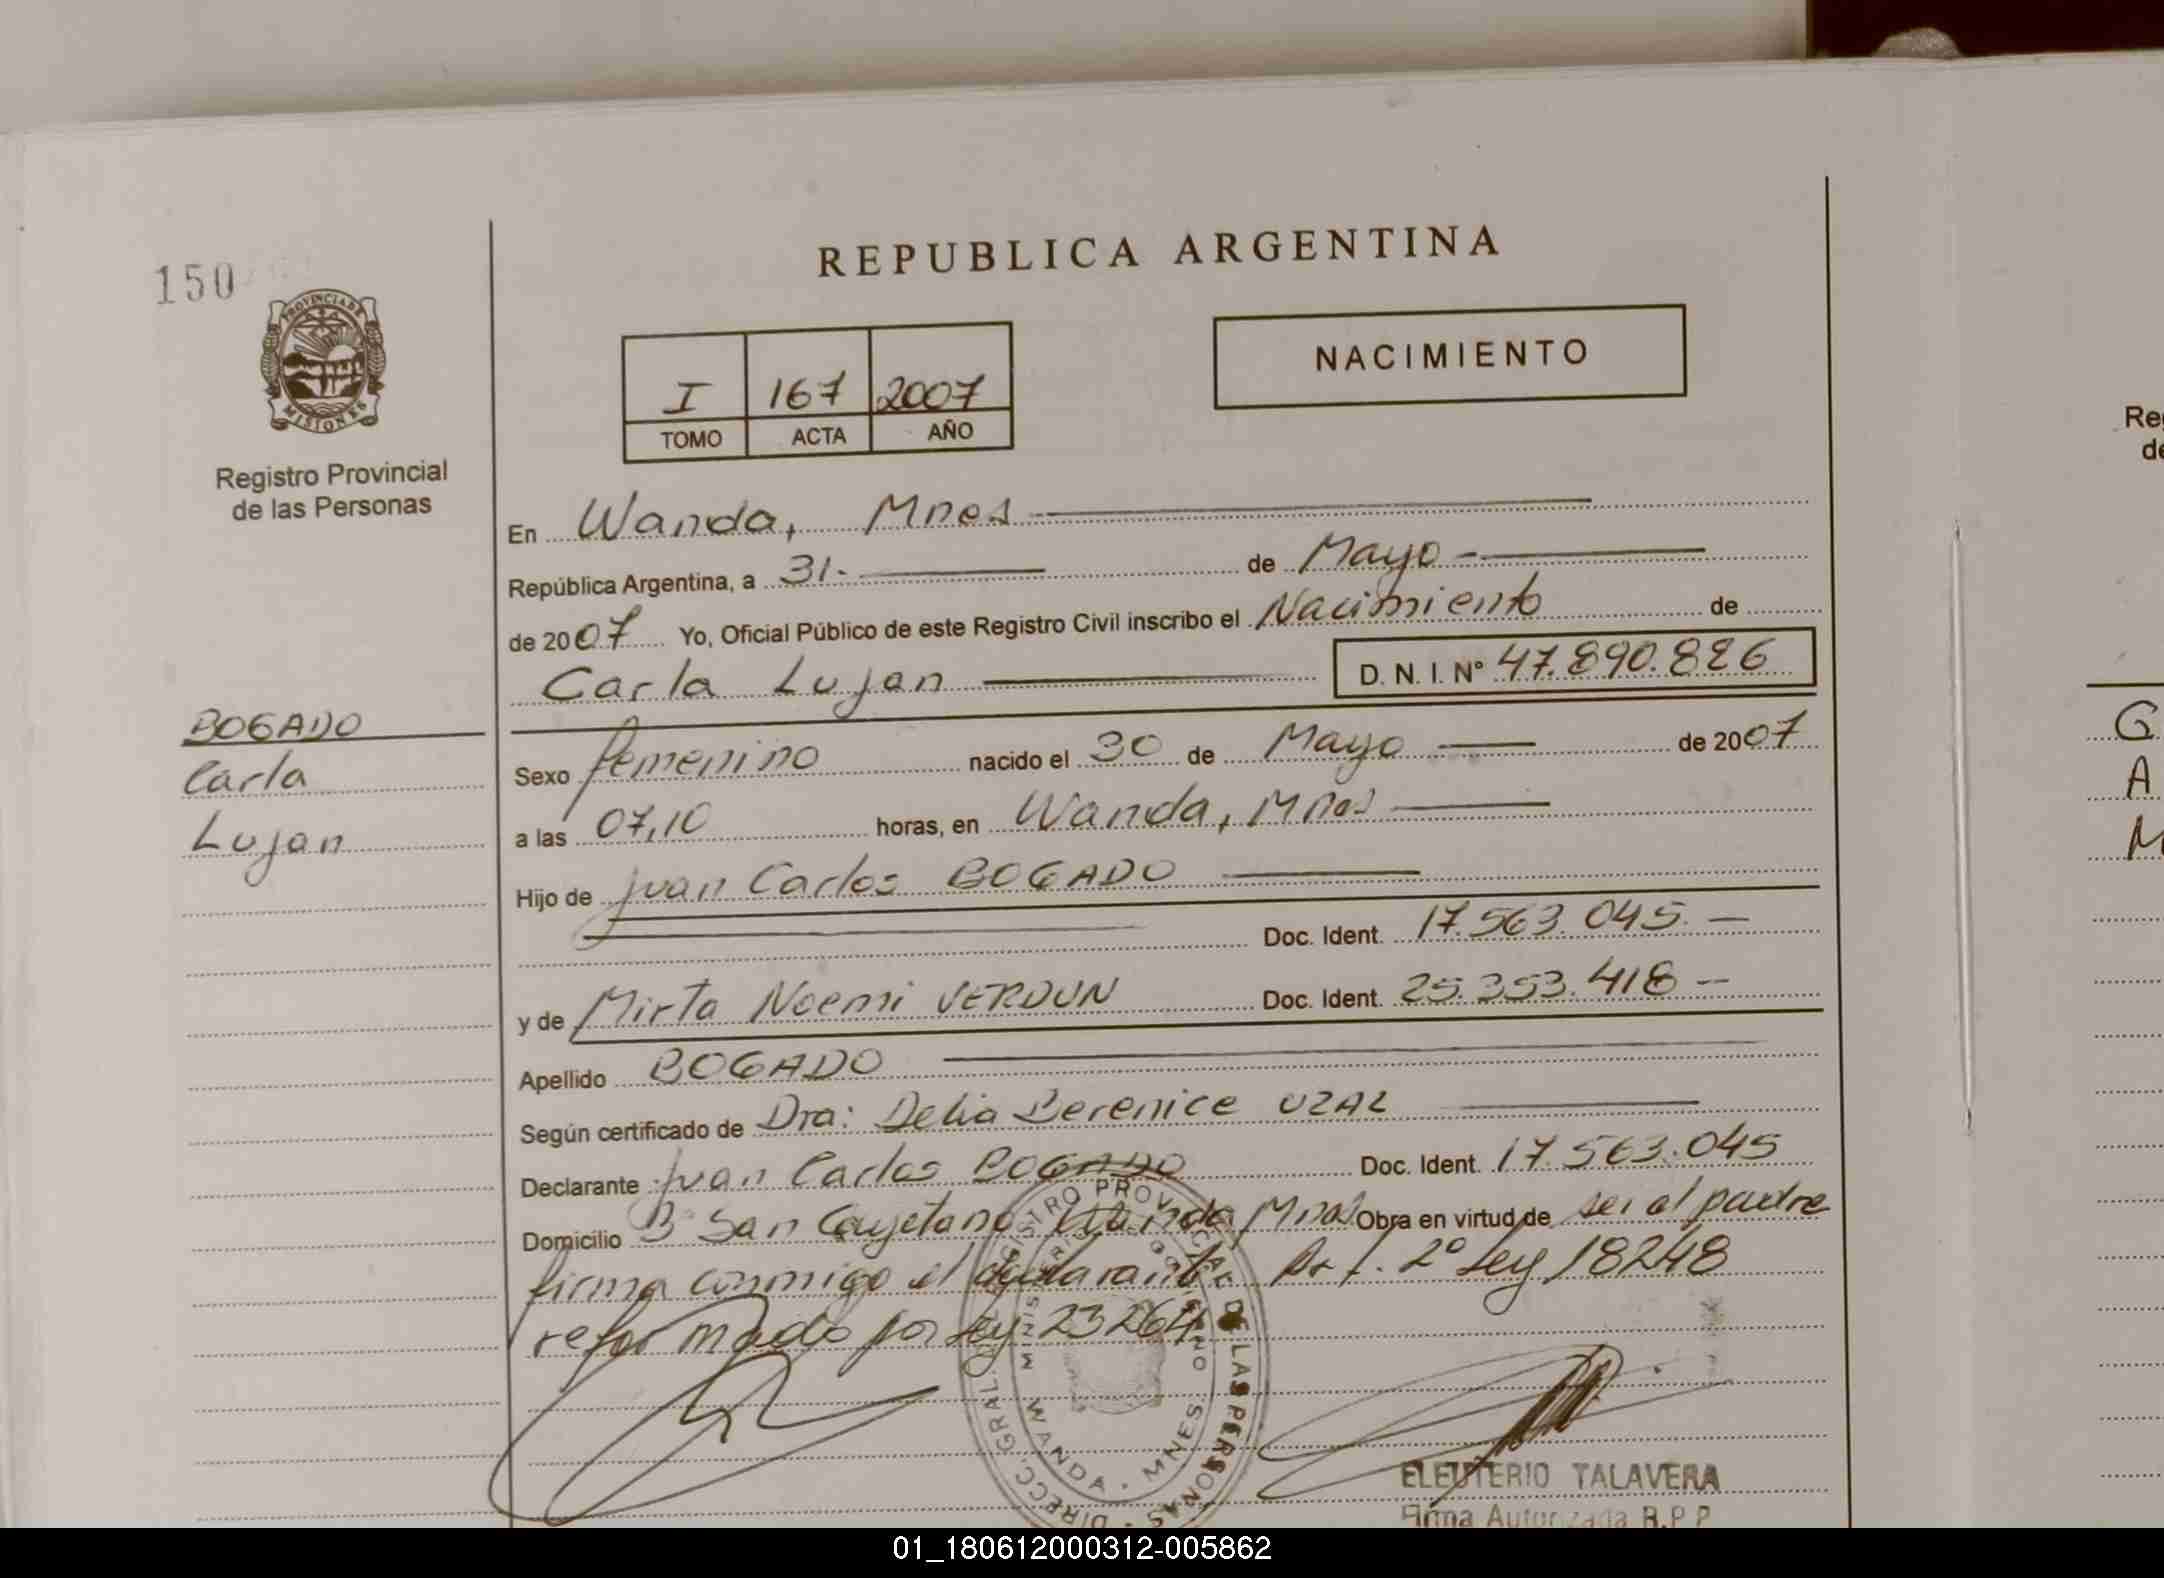 150
PROVINCIA DE
MISIONES
Registro Provincial
de las Personas
REPUBLICA ARGENTINA
I 167 2007
TOMO ACTA AÑO
NACIMIENTO
En Wanda, Mnes
República Argentina, a 31 de Mayo
de 2007 Yo, Oficial Público de este Registro Civil inscribo el Nacimiento de
Carla Lujan D. N. I. N° 47.890.826
BOGADO
Carla
Lujan
Sexo femenino nacido el 30 de Mayo de 2007
a las 07,10 horas, en Wanda, Mnes
Hijo de Juan Carlos BOGADO
Doc. Ident. 17.563.045
y de Mirta Noemi VERDUN Doc. Ident. 25.353.418
Apellido BOGADO
Según certificado de Dra: Delia Berenice UZAL
Declarante Juan Carlos BOGADO Doc. Ident. 17.563.045
Domicilio B° San Cayetano, Wanda, Mnes Obra en virtud de ser el padre
firma conmigo el declarante Art. 2° Ley 18248
reformado por Ley 23264
DIRECC. GRAL. REGISTRO PROVINCIAL DE LAS PERSONAS
MINISTERIO DE GOBIERNO
WANDA - MNES
ELEUTERIO TALAVERA
Firma Autorizada R.P.P
Reg
de
G
A
M
01_180612000312-005862